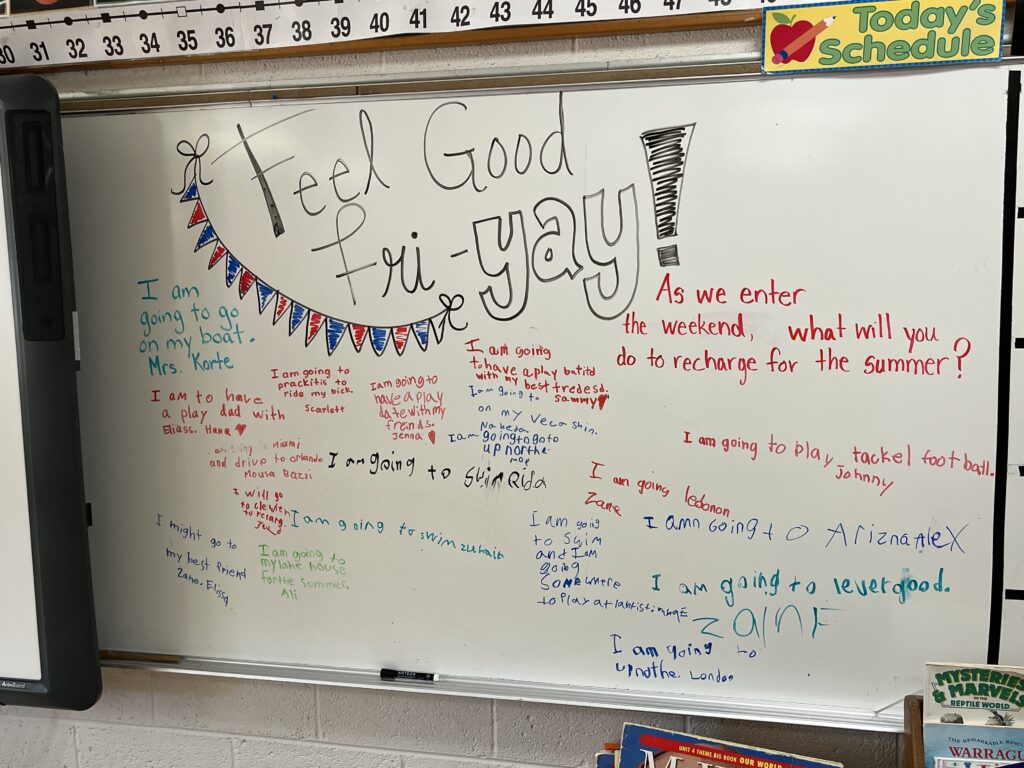 30 31 32 33 34 35 36 37 38 39 40 41 42 43 44 45 46 47
Today's
Schedule
Feel Good
fri-yay!
As we enter
the weekend, what will you
do to recharge for the summer?
I am
going to go
on my boat.
Mrs. Korte
I am going to
prackitis to
ride my bick.
Scarlett
I am going to
have a play
date with my
freinds.
Jenna
I am going
to have a play batitd
with my best fredesd.
Sammy
I am to have
a play dad with
Eliass. Hana
I am going to
on my Vecashin.
Naheda
I am going to go to
up northe.
Miami
and drive to orlando
Mousa Bazzi
I am going to swim Rida
I am going to play tackel football.
Johnny
I am going lebonon
Zane
I will go
to clevlen
to recarg.
I am going to swim zuhair
I amn going to Arizna Alex
I might go to
my best friend
Zane. Elissa
I am going to
my lake house
for the summer.
Ali
I am going
to swim
and I am
going
Somewhere
to play
I am going to levergood.
zainF
I am going to
upnothe. London
ActivBoard
MYSTERIES
& MARVELS
OF THE
REPTILE WORLD
THE REMARKABLE
WARRAG
UNIT 4 THEME BIG BOOK OUR WORLD